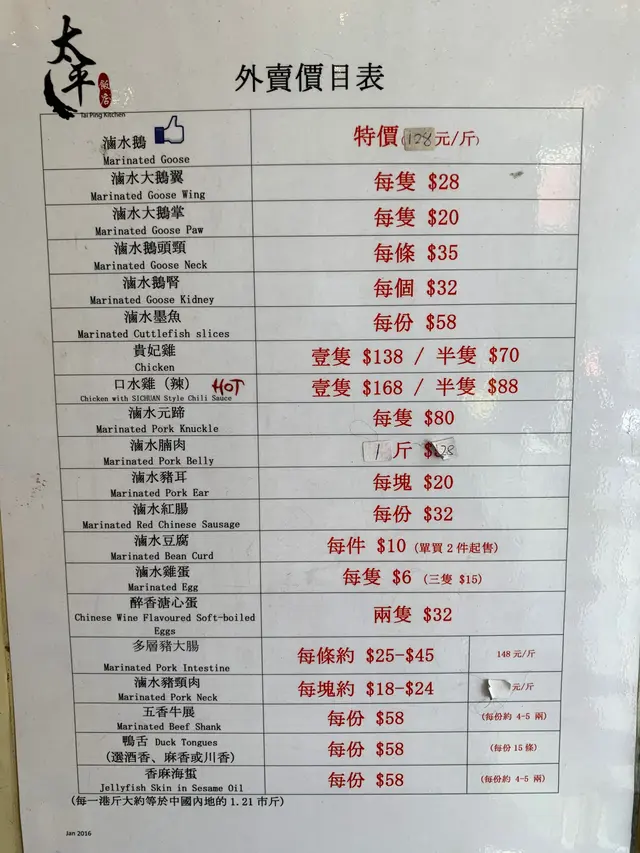 太平
飯店
Tai Ping Kitchen
外賣價目表
滷水鵝
Marinated Goose
特價(128元/斤)
滷水大鵝翼
Marinated Goose Wing
每隻 $28
滷水大鵝掌
Marinated Goose Paw
每隻 $20
滷水鵝頭頸
Marinated Goose Neck
每條 $35
滷水鵝腎
Marinated Goose Kidney
每個 $32
滷水墨魚
Marinated Cuttlefish slices
每份 $58
貴妃雞
Chicken
壹隻 $138 / 半隻 $70
口水雞（辣） HOT
Chicken with SICHUAN Style Chili Sauce
壹隻 $168 / 半隻 $88
滷水元蹄
Marinated Pork Knuckle
每隻 $80
滷水腩肉
Marinated Pork Belly
1 斤 $128
滷水豬耳
Marinated Pork Ear
每塊 $20
滷水紅腸
Marinated Red Chinese Sausage
每份 $32
滷水豆腐
Marinated Bean Curd
每件 $10 (單買 2 件起售)
滷水雞蛋
Marinated Egg
每隻 $6 (三隻 $15)
醉香溏心蛋
Chinese Wine Flavoured Soft-boiled
Eggs
兩隻 $32
多層豬大腸
Marinated Pork Intestine
每條約 $25-$45
148 元/斤
滷水豬頸肉
Marinated Pork Neck
每塊約 $18-$24
元/斤
五香牛展
Marinated Beef Shank
每份 $58
(每份約 4-5 兩)
鴨舌 Duck Tongues
(選酒香、麻香或川香)
每份 $58
(每份 15 條)
香麻海蜇
Jellyfish Skin in Sesame Oil
每份 $58
(每份約 4-5 兩)
(每一港斤大約等於中國內地的 1.21 市斤)
Jan 2016